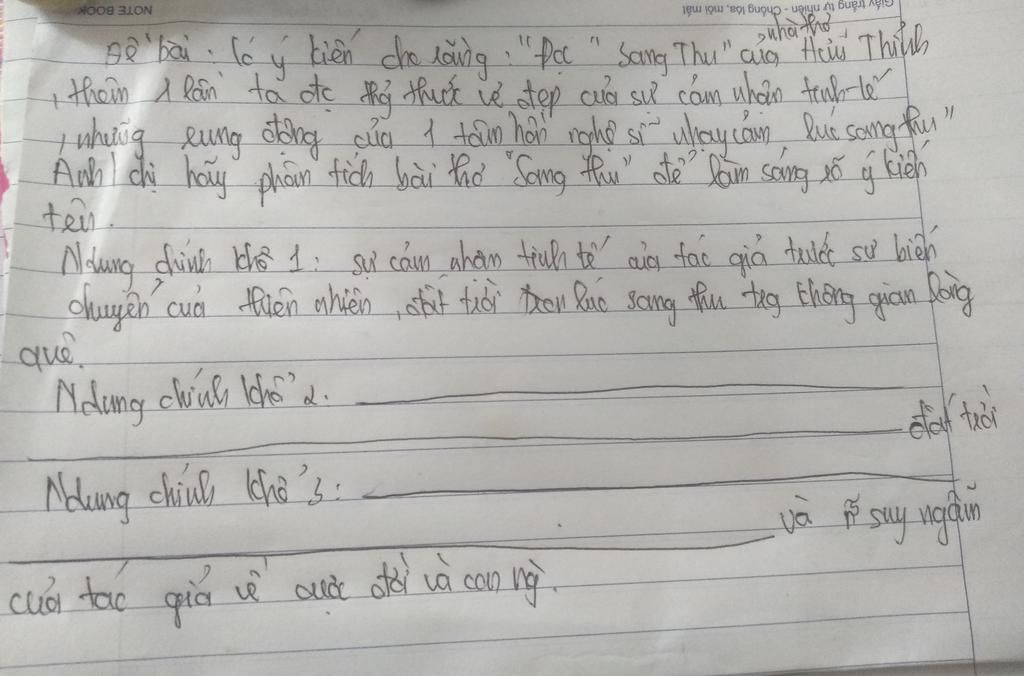 NOTE BOOK
Giấy trắng tự nhiên - Chống lóa, mỏi mắt
nhà thơ
Đề bài: Có ý kiến cho rằng: "Đọc "Sang Thu" của Hữu Thỉnh
, thêm 1 lần ta đc thưởng thức vẻ đẹp của sự cảm nhận tinh tế
, những rung động của 1 tâm hồn nghệ sĩ nhạy cảm lúc sang thu"
Anh/chị hãy phân tích bài thơ "Sang thu" để làm sáng rõ ý kiến
trên.
Ndung chính khổ 1: sự cảm nhận tinh tế của tác giả trước sự biến
chuyển của thiên nhiên, đất trời lúc sang thu trg không gian làng
quê.
Ndung chính khổ 2.
đất trời
Ndung chính khổ 3:
và suy ngẫm
của tác giả về cuộc đời và con ng.